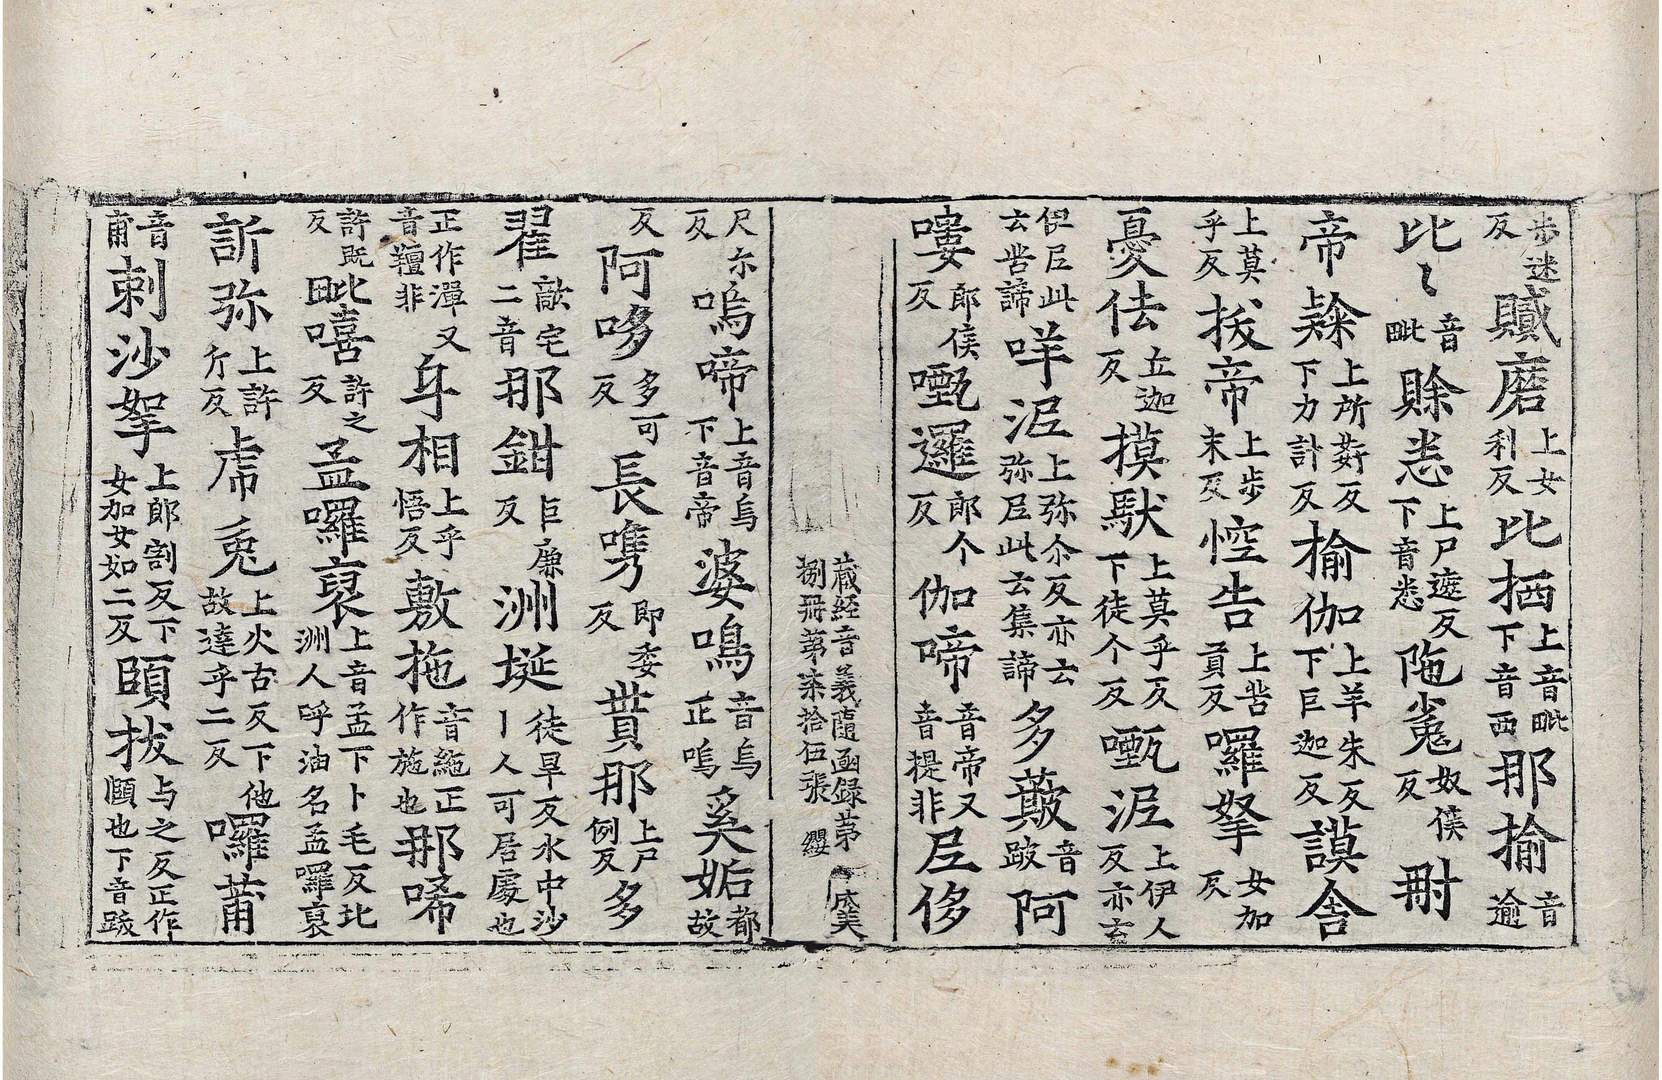 步迷反贜磨上女利反比栖上音毗下音西那揄音逾
比〻音毗賖恙上尸遮反下音恙陁㝹奴侯反㖠
帝㰆上所𦵩反下力計反榆伽上羊朱反下巨迦反謨舎
上莫乎反拔帝上步末反悾告上苦貢反囉拏女加反
憂佉立迦反摸馱上莫乎反下徒个反㽀泥上伊人反亦云
伊尼此云苦諦咩泥上弥尒反亦云弥尼此云集諦多蔽音跛阿
嘍郎侯反㽀邏郎个反伽啼音帝又音提非㞐侈
蔵経音義隨函録第捌冊第柒拾伍張 纓
尺尒反嗚啼上音烏下音帝婆嗚音烏正嗚奚妬都故反
阿哆多可反長㗱即委反貰那上尸例反多
翟敵宅二音那鉗巨廉反洲埏徒旱反水中沙丨人可居處也
正作潬又音䡀非身相上乎悟反敷拖音絁正作施也那唏
許既反毗嘻許之反孟囉裒上音孟下卜毛反北洲人呼油名孟囉裒
訢弥上許斤反虖兎上火古反下他故達乎二反囉莆
音甫剌沙拏上郎割反下女加女如二反頤拔与之反正作頤也下音跋